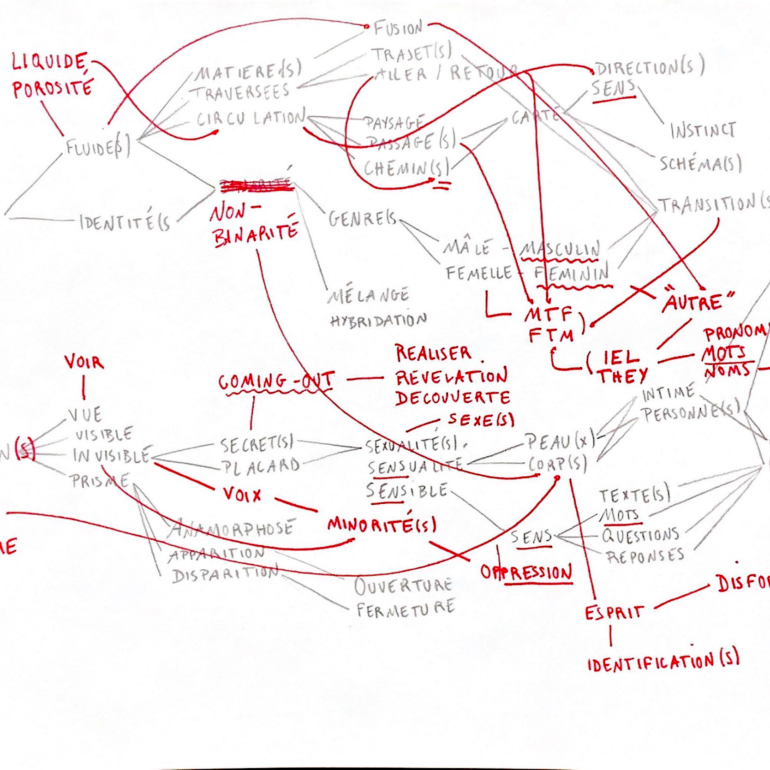 FUSION
LIQUIDE
POROSITÉ
TRAJET(S)
ALLER / RETOUR
MATIÈRE(S)
TRAVERSÉES
CIRCULATION
DIRECTION(S)
SENS
PAYSAGE
PASSAGE(S)
CHEMIN(S)
CARTE
INSTINCT
SCHÉMA(S)
TRANSITION(S
FLUIDE(S)
IDENTITÉ(S
NON-
BINARITÉ
GENRE(S
MÂLE - MASCULIN
FEMELLE - FÉMININ
MÉLANGE
HYBRIDATION
MTF
FTM
"AUTRE"
IEL
THEY
PRONOM
MOTS
NOMS
VOIR
COMING-OUT
RÉALISER
RÉVÉLATION
DÉCOUVERTE
SEXE(S)
INTIME
PERSONNE(S)
N(S)
VUE
VISIBLE
INVISIBLE
PRISME
SECRET(S)
PLACARD
SEXUALITÉ(S)
SENSUALITÉ
SENSIBLE
PEAU(X)
CORP(S)
VOIX
MINORITÉ(S)
TEXTE(S)
MOTS
QUESTIONS
RÉPONSES
SENS
ANAMORPHOSE
APPARITION
DISPARITION
OPPRESSION
OUVERTURE
FERMETURE
RE
ESPRIT
DISFO
IDENTIFICATION(S)